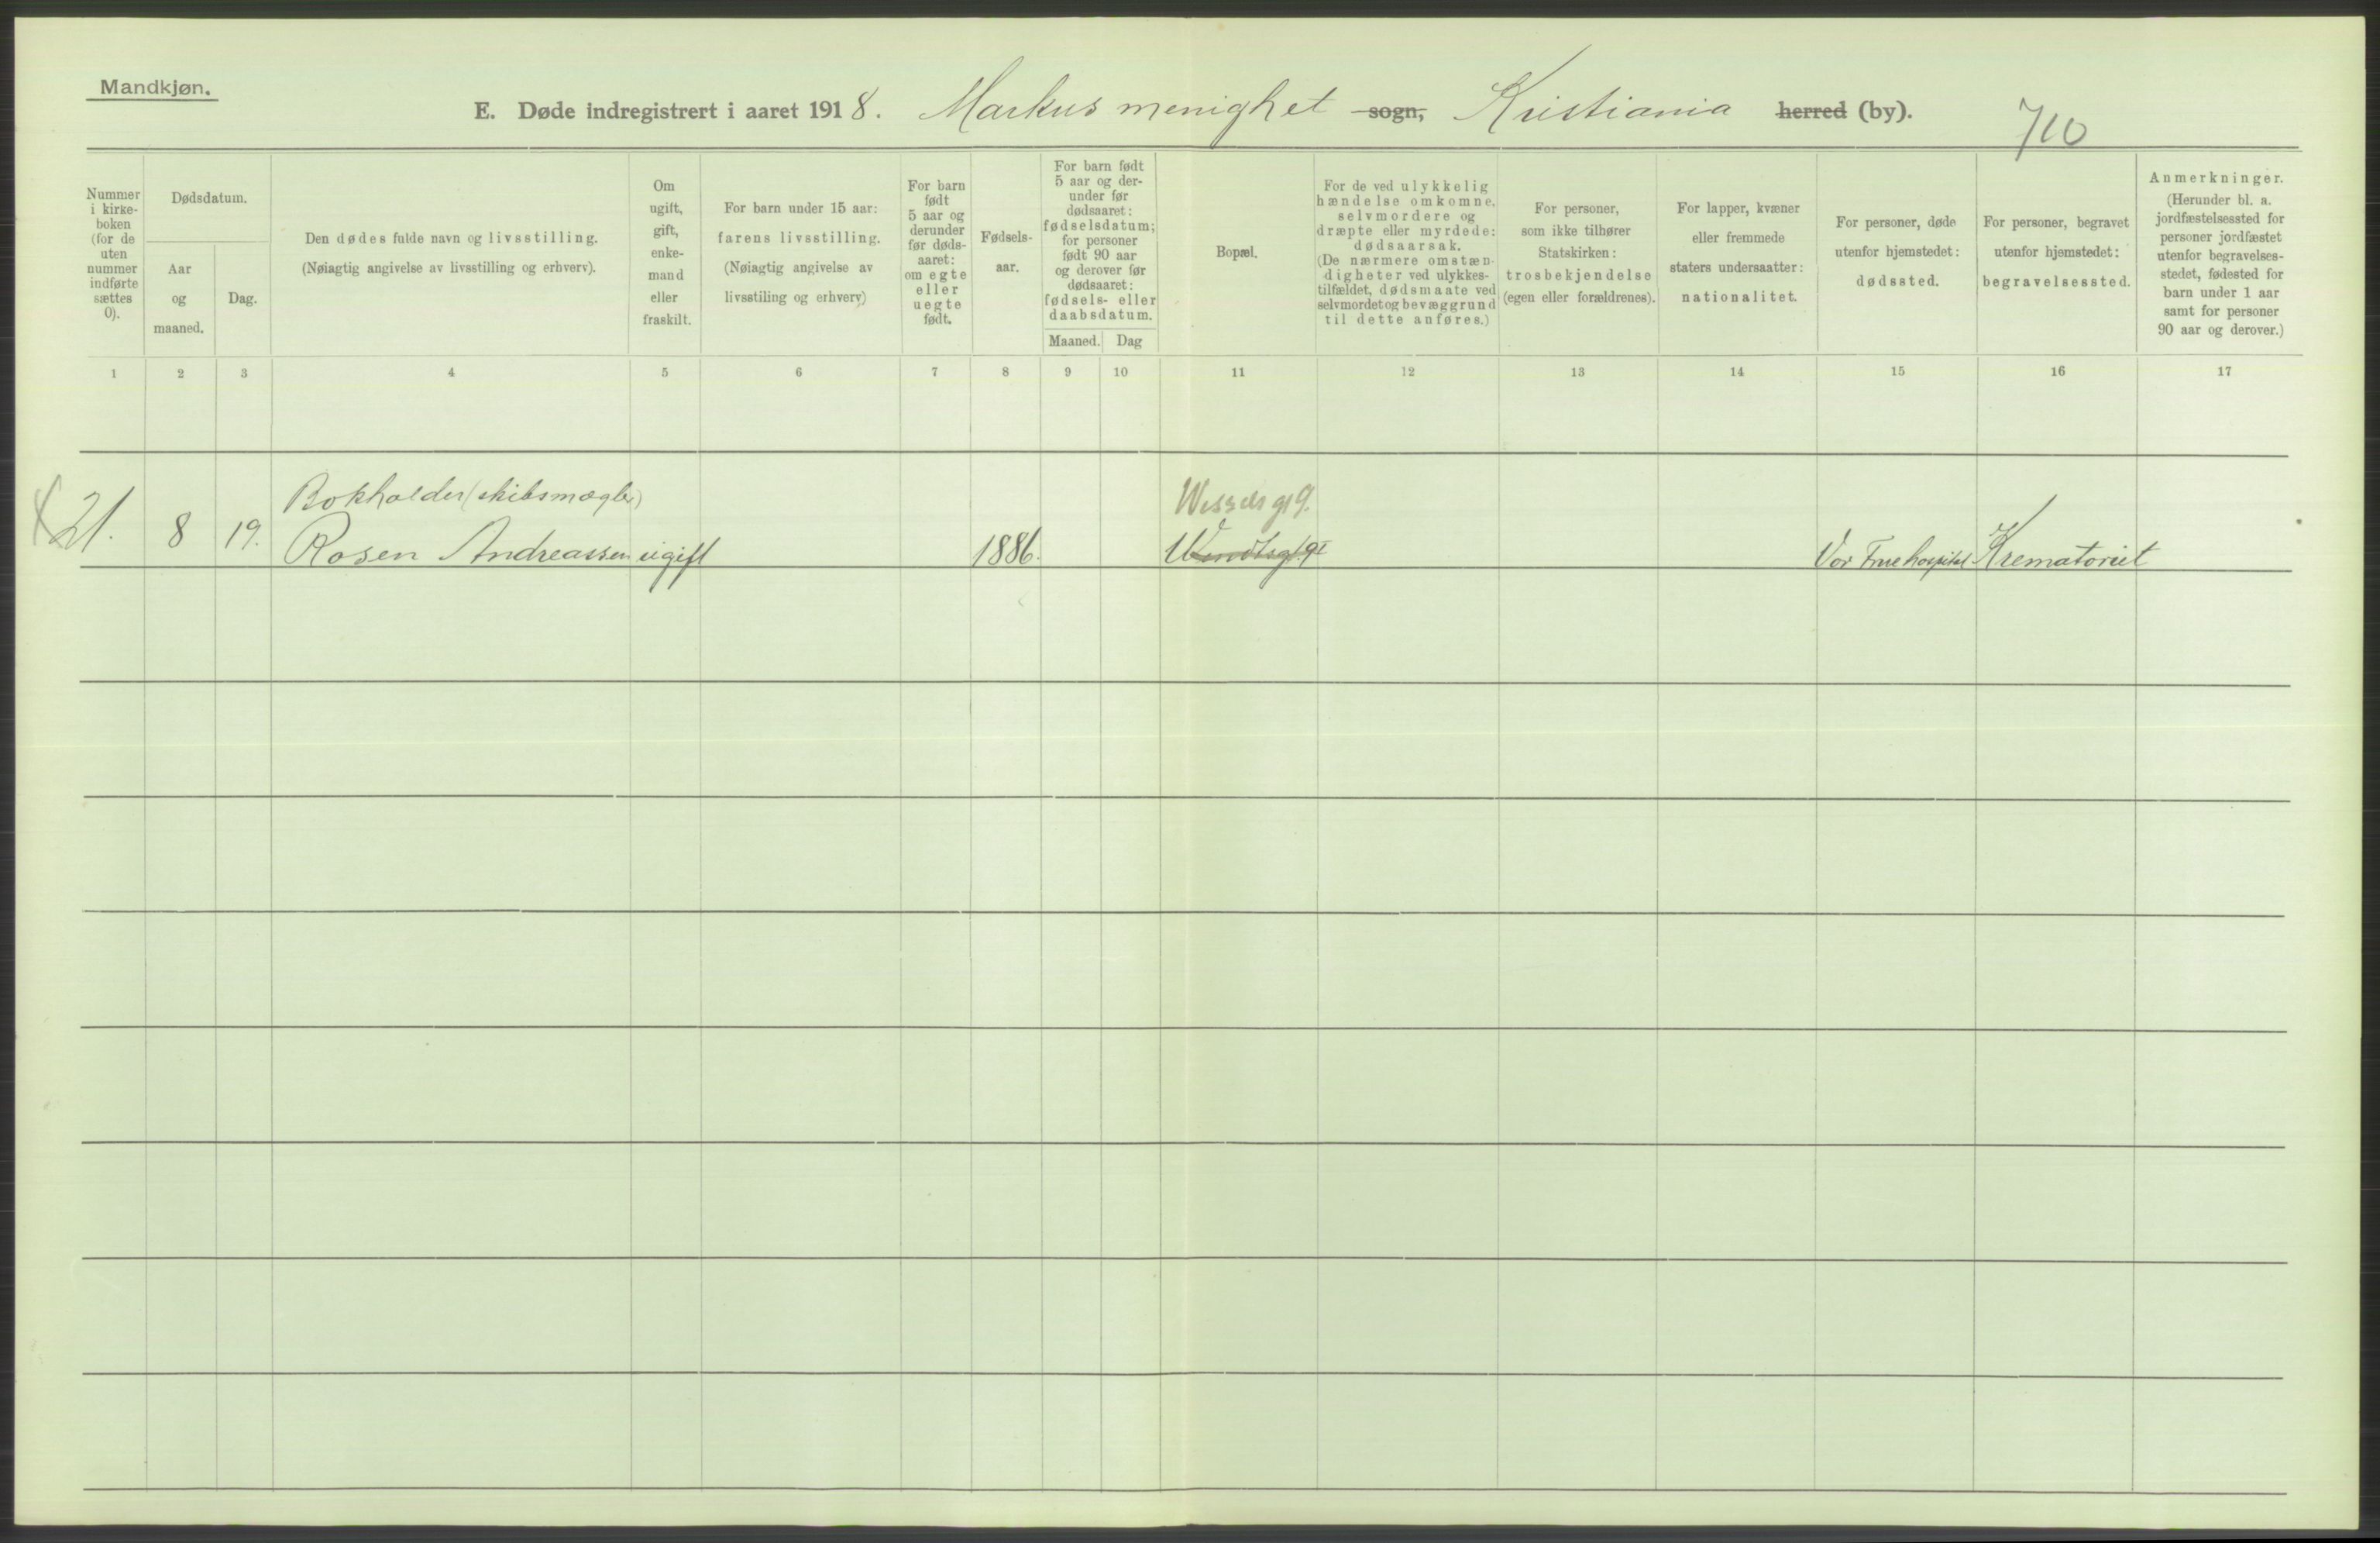 Mandkjøn.
E. Døde indregistrert i aaret 1918. Markus menighet sogn, Kristiania herred (by).
710
Nummer
i kirke-
boken
(for de
uten
nummer
indførte
sættes
0).
Dødsdatum.
Aar
og
maaned.
Dag.
Den dødes fulde navn og livsstilling.
(Nøiagtig angivelse av livsstilling og erhverv).
Om
ugift,
gift,
enke-
mand
eller
fraskilt.
For barn under 15 aar:
farens livsstilling.
(Nøiagtig angivelse av
livsstiling og erhverv)
For barn
født
5 aar og
derunder
før døds-
aaret:
om egte
eller
uegte
født.
Fødsels-
aar.
For barn født
5 aar og der-
under før
dødsaaret:
fødselsdatum;
for personer
født 90 aar
og derover før
dødsaaret:
fødsels- eller
daabsdatum.
Maaned.
Dag
Bopæl.
For de ved ulykkelig
hændelse omkomne,
selvmordere og
dræpte eller myrdede:
dødsaarsak.
(De nærmere omstæn-
digheter ved ulykkes-
tilfældet, dødsmaate ved
selvmordet og bevæggrund
til dette anføres.)
For personer,
som ikke tilhører
Statskirken:
trosbekjendelse
(egen eller forældrenes).
For lapper, kvæner
eller fremmede
staters undersaatter:
nationalitet.
For personer, døde
utenfor hjemstedet:
dødssted.
For personer, begravet
utenfor hjemstedet:
begravelsessted.
Anmerkninger.
(Herunder bl. a.
jordfæstelsessted for
personer jordfæstet
utenfor begravelses-
stedet, fødested for
barn under 1 aar
samt for personer
90 aar og derover.)
1 2 3 4 5 6 7 8 9 10 11 12 13 14 15 16 17
Bokholder (skibsmægler) Wessels gt 9.
21. 8 19. Rosen Andreassen ugift 1886. Vor Frue hospital Krematoriet